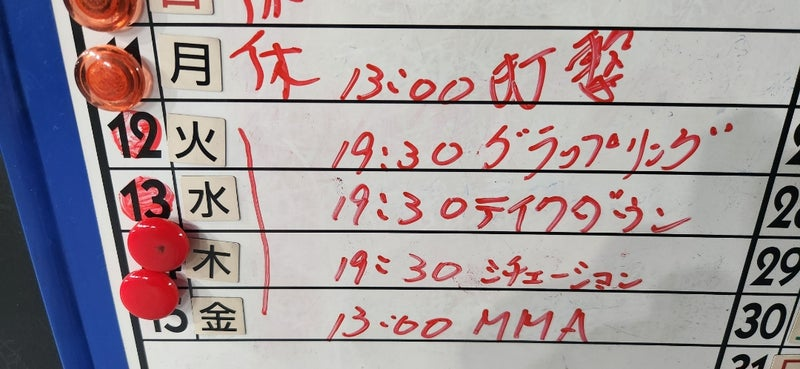 日 休
11 月 休 13:00 打撃
12 火 19:30 グラップリング
13 水 19:30 テイクダウン 28
木 19:30 シチェーション 29
15 金 13:00 MMA 30
31